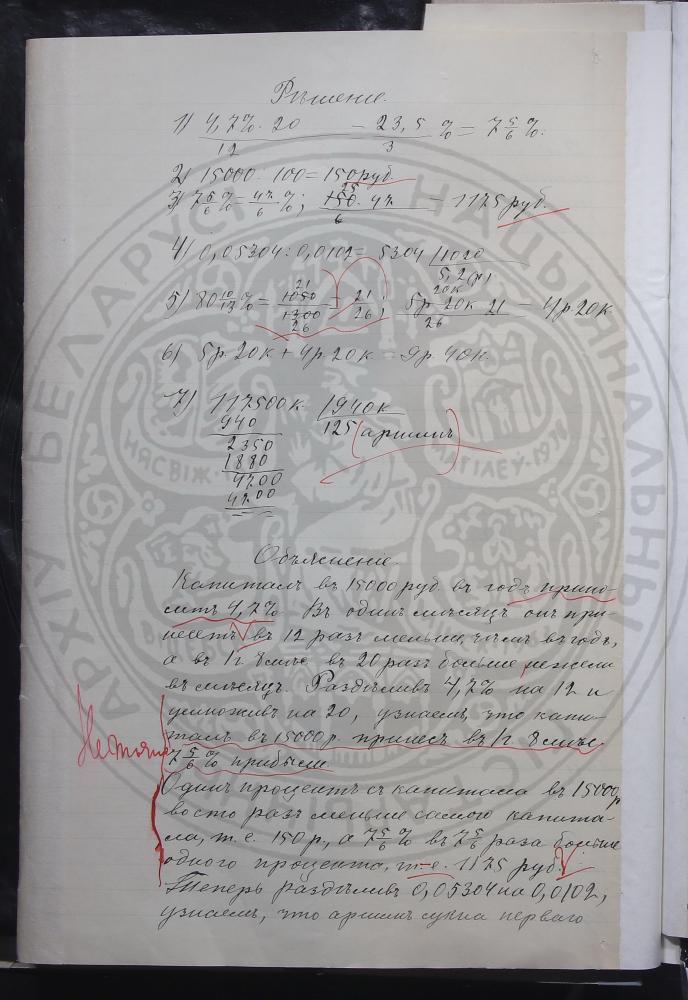 Рѣшеніе.
1) 4,7%. 20 / 12 = 23,5 / 3 % = 7 5/6 %.
2) 15000 : 100 = 150 руб.
3) 7 5/6 % = 47/6 %; 150. 47 / 6 = 1175 руб.
25
4) 0,05304 : 0,0102 = 5304 /1020
5,2 (р)
5) 80 10/13 % = 1050/1300 = 21/26; 5р. 20к. 21 / 26 = 4р. 20к
21
26
20к
6) 5р. 20к + 4р. 20к = 9р. 40к.
7) 117500к. /940к
940 125 (аршинъ)
2350
1880
4700
4700
Объясненіе.
Капиталъ въ 15000 руб. въ годъ прино-
ситъ 4,7% Въ одинъ мѣсяцъ онъ при-
несетъ въ 12 разъ меньше, чѣмъ въ годъ,
а въ 1г 8 мѣс въ 20 разъ больше нежели
въ мѣсяцъ. Раздѣливъ 4,7% на 12 и
умноживъ на 20, узнаемъ, что капи-
талъ въ 15000 р. принесъ въ 1г 8 мѣс.
7 5/6 % прибыли.
Одинъ процентъ съ капитала въ 15000 р
во сто разъ меньше самого капита-
ла, т. е. 150 р., а 7 5/6 % въ 7 5/6 раза больше
одного процента, т. е. 1175 руб.
Теперь раздѣливъ 0,05304 на 0,0102,
узнаемъ, что аршинъ сукна перваго
АРХІЎ БЕЛАРУСІ НАЦЫЯНАЛЬНЫ
НЯСВІЖ